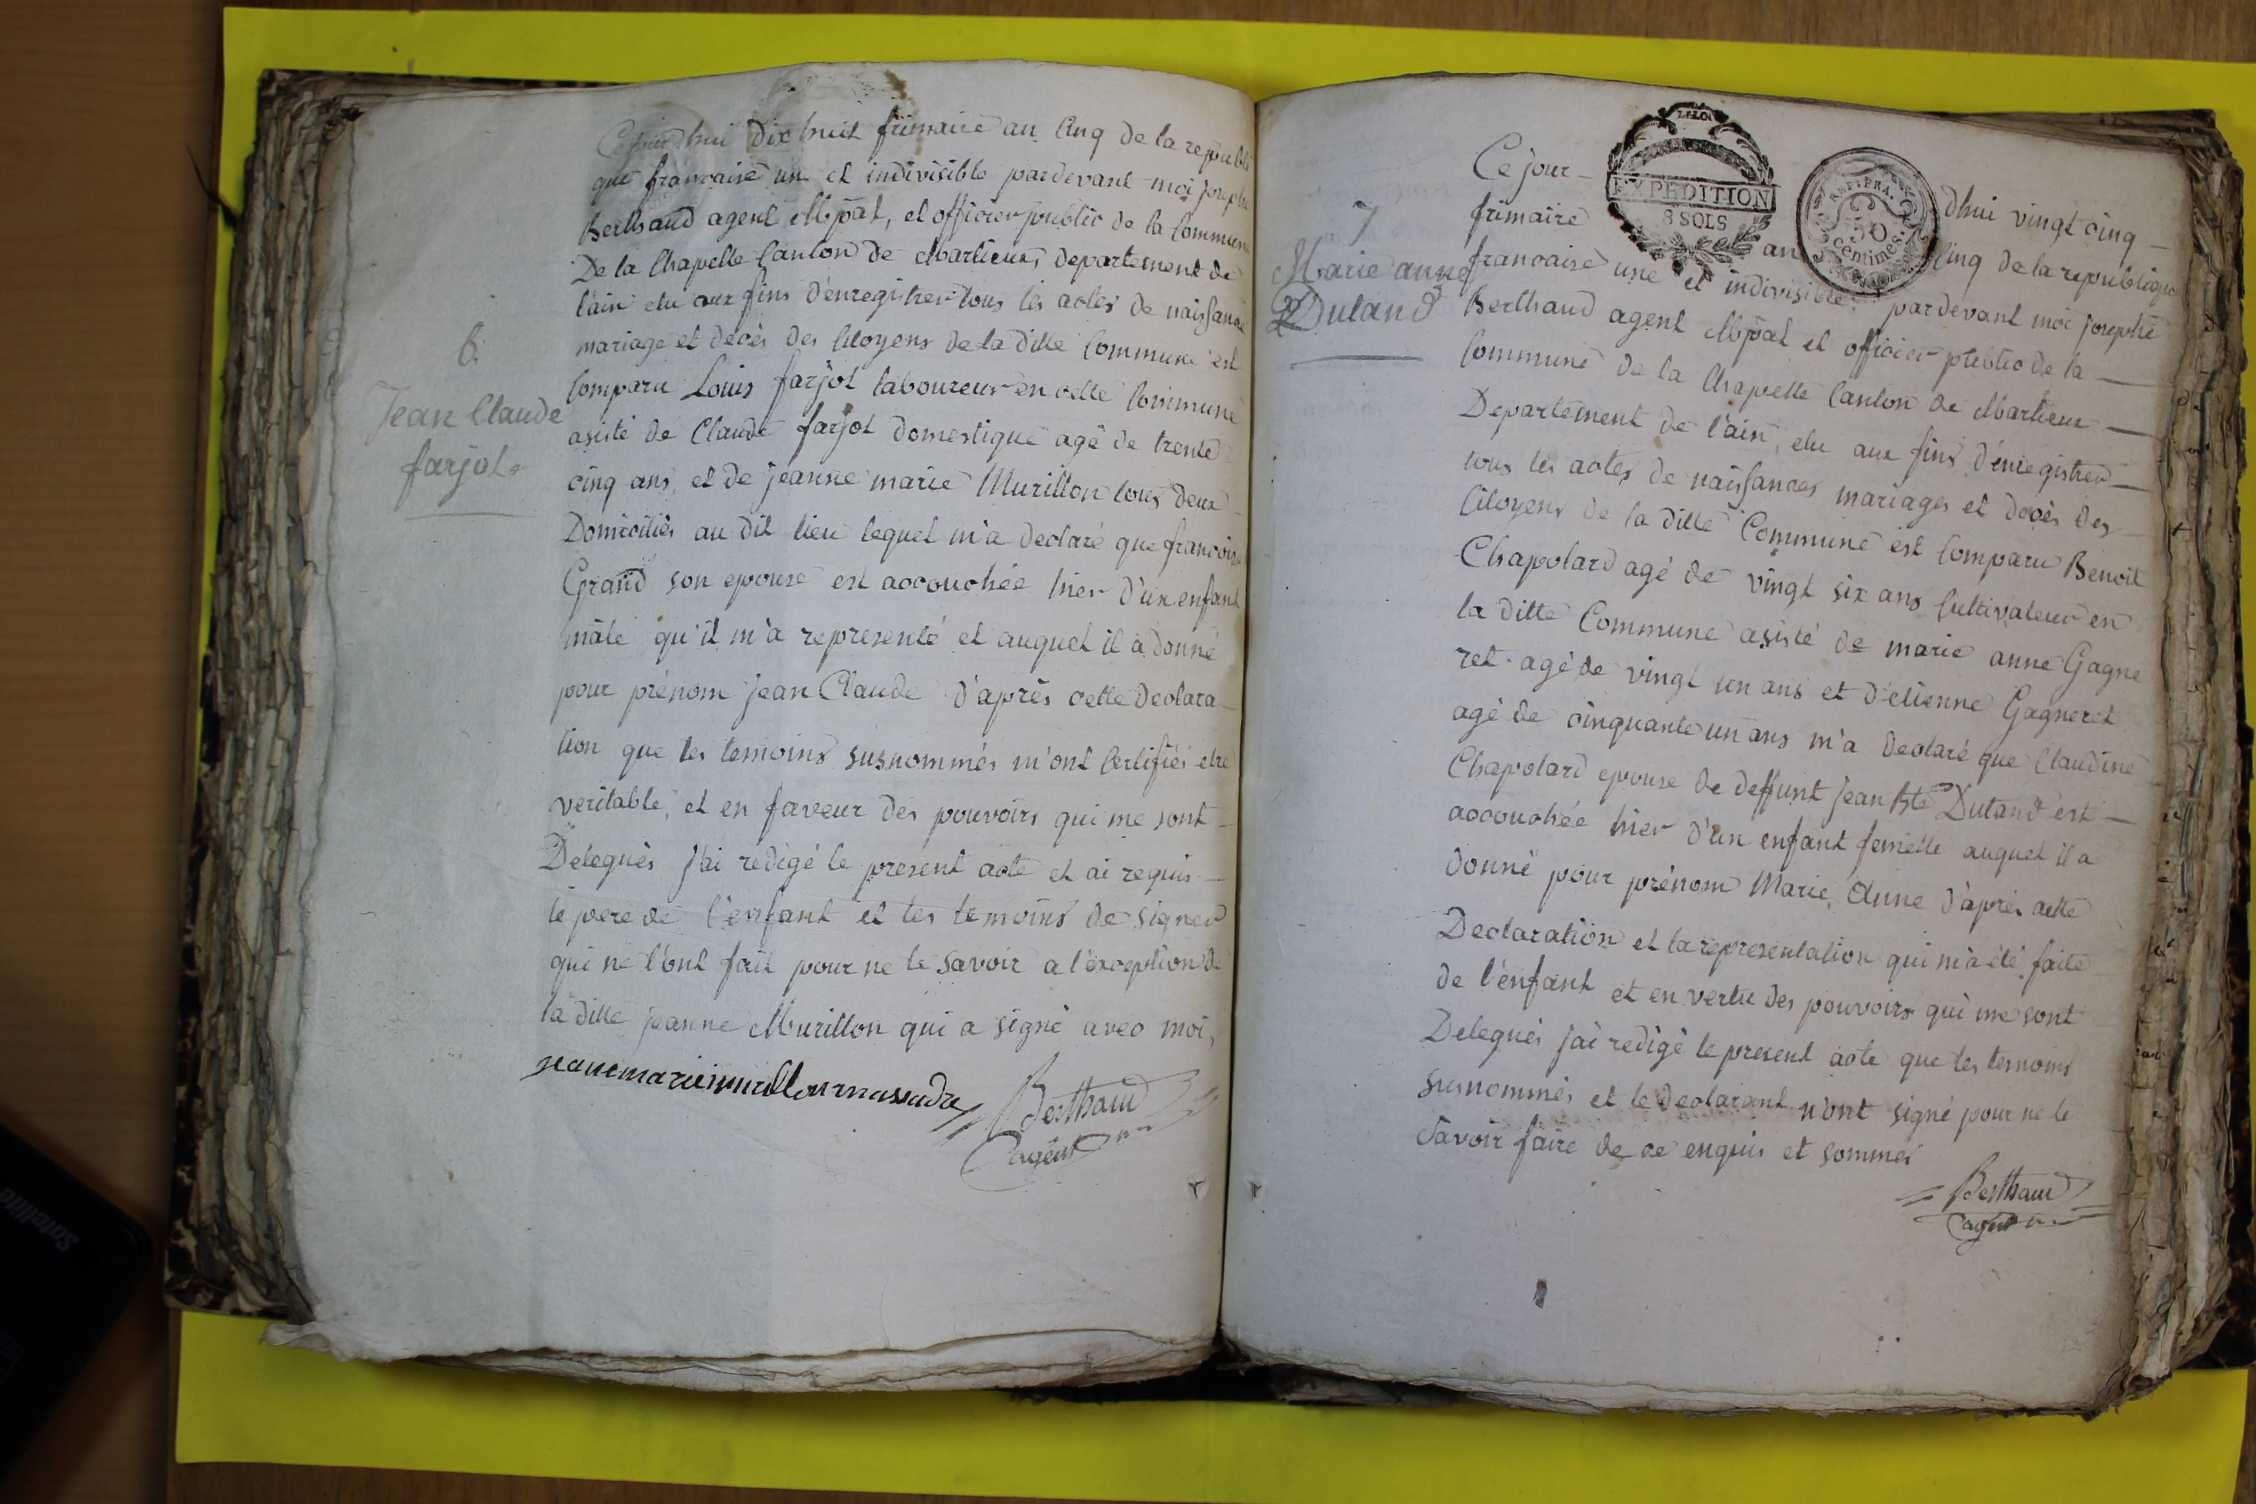 6.
Jean Claude
farjot
Ce jourdhui dix huit frimaire an Cinq de la republi
que francaise une et indivisible pardevant moi joseph
Berthaud agent Mpal, et officier public de la Commune
De la Chapelle Canton de Marlieux, departement de
l'ain elu aux fins d'enregistrer tous les actes de naissance
mariage et decès des Citoyens de la ditte Commune est
Comparu Louis farjot laboureur en cette Commune
asisté de Claude farjot domestique agé de trente
cinq ans, et de jeanne marie Murillon tous deux
Domiciliés au dit lieu lequel m'a declaré que francoise
Grand son epouse est accouchée hier d'un enfant
mâle qu'il m'a representé et auquel il a donné
pour prénom jean Claude d'après cette Declara
tion que les temoins susnommés m'ont Certifiés etre
veritable, et en faveur des pouvoirs qui me sont
Delegués j'ai redigé le present acte et ai requis
le pere de l'enfant et les temoins de signer
qui ne l'ont fait pour ne le savoir a l'exception de
la ditte jeanne Murillon qui a signé avec moi,
Berthaud
agent
7
Marie anne
Dutand
EXPEDITION
8 SOLS
50
centimes.
Ce jour - dhui vingt cinq
frimaire an Cinq de la republique
francaise une et indivisible. pardevant moi josephe
Berthaud agent Mpal et officier public de la
Commune de la Chapelle Canton de Marlieux
Departement de l'ain, elu aux fins d'enregistrer
tous les actes de naissances mariages et decès des
Citoyens de la ditte Commune est Comparu Benoit
Chapolard agé de vingt six ans Cultivateur en
la ditte Commune asisté de marie anne Gagne
ret agé de vingt un ans et d'etienne Gagneret
agé de cinquante un ans m'a declaré que Claudine
Chapolard epouse de deffunt jean Bte Dutand est
accouchée hier d'un enfant femelle auquel il a
donné pour prénom Marie, Anne d'après cette
Declaration et la representation qui m'a été faite
de l'enfant et en vertu des pouvoirs qui me sont
Delegués j'ai redigé le present acte que les temoins
susnommés et le declarant n'ont signé pour ne le
savoir faire de ce enquis et sommés
Berthaud
agent